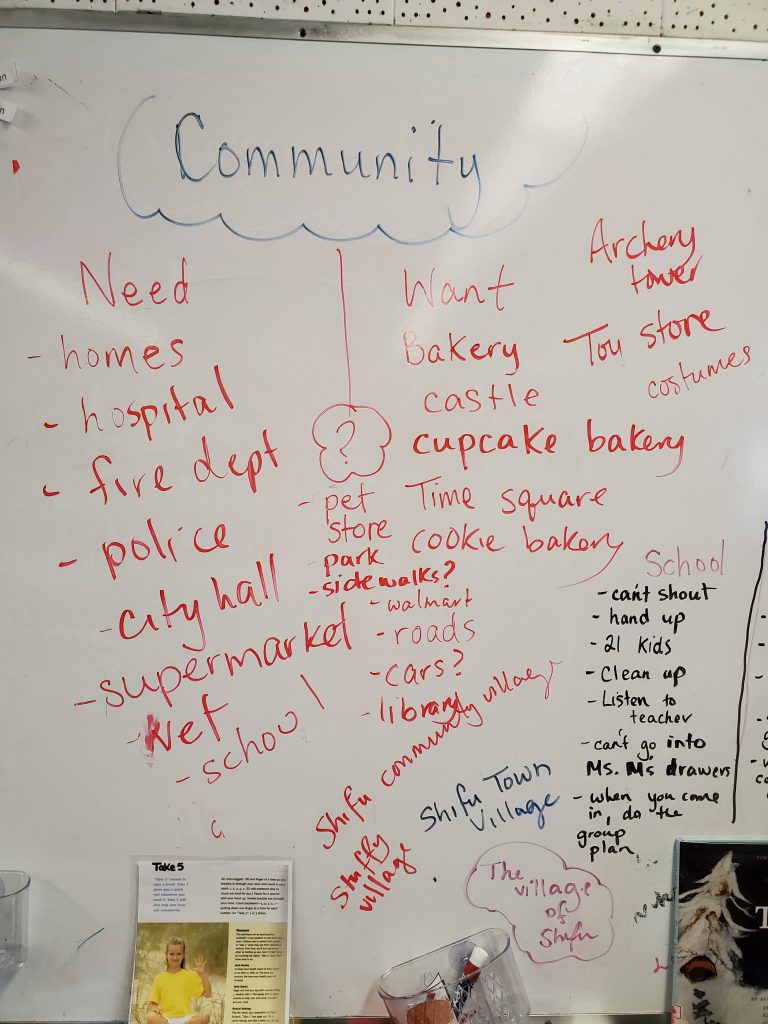 Community
Need
- homes
- hospital
- fire dept
- police
- city hall
- supermarket
- vet
- school
?
- pet
store
- park
- sidewalks?
- walmart
- roads
- cars?
- library
Want
Bakery
castle
cupcake bakery
Time square
cookie bakery
Archery
tower
Toy store
costumes
School
- can't shout
- hand up
- 21 kids
- Clean up
- Listen to
teacher
- can't go into
Ms. Ms drawers
- when you come
in, do the
group
plan
Shifu community village
Shuffy
village
Shifu Town
Village
The
village
of
Shifu
Take 5